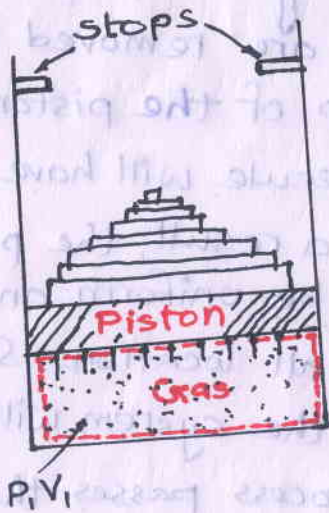 stops
Piston
Gas
P₁V₁